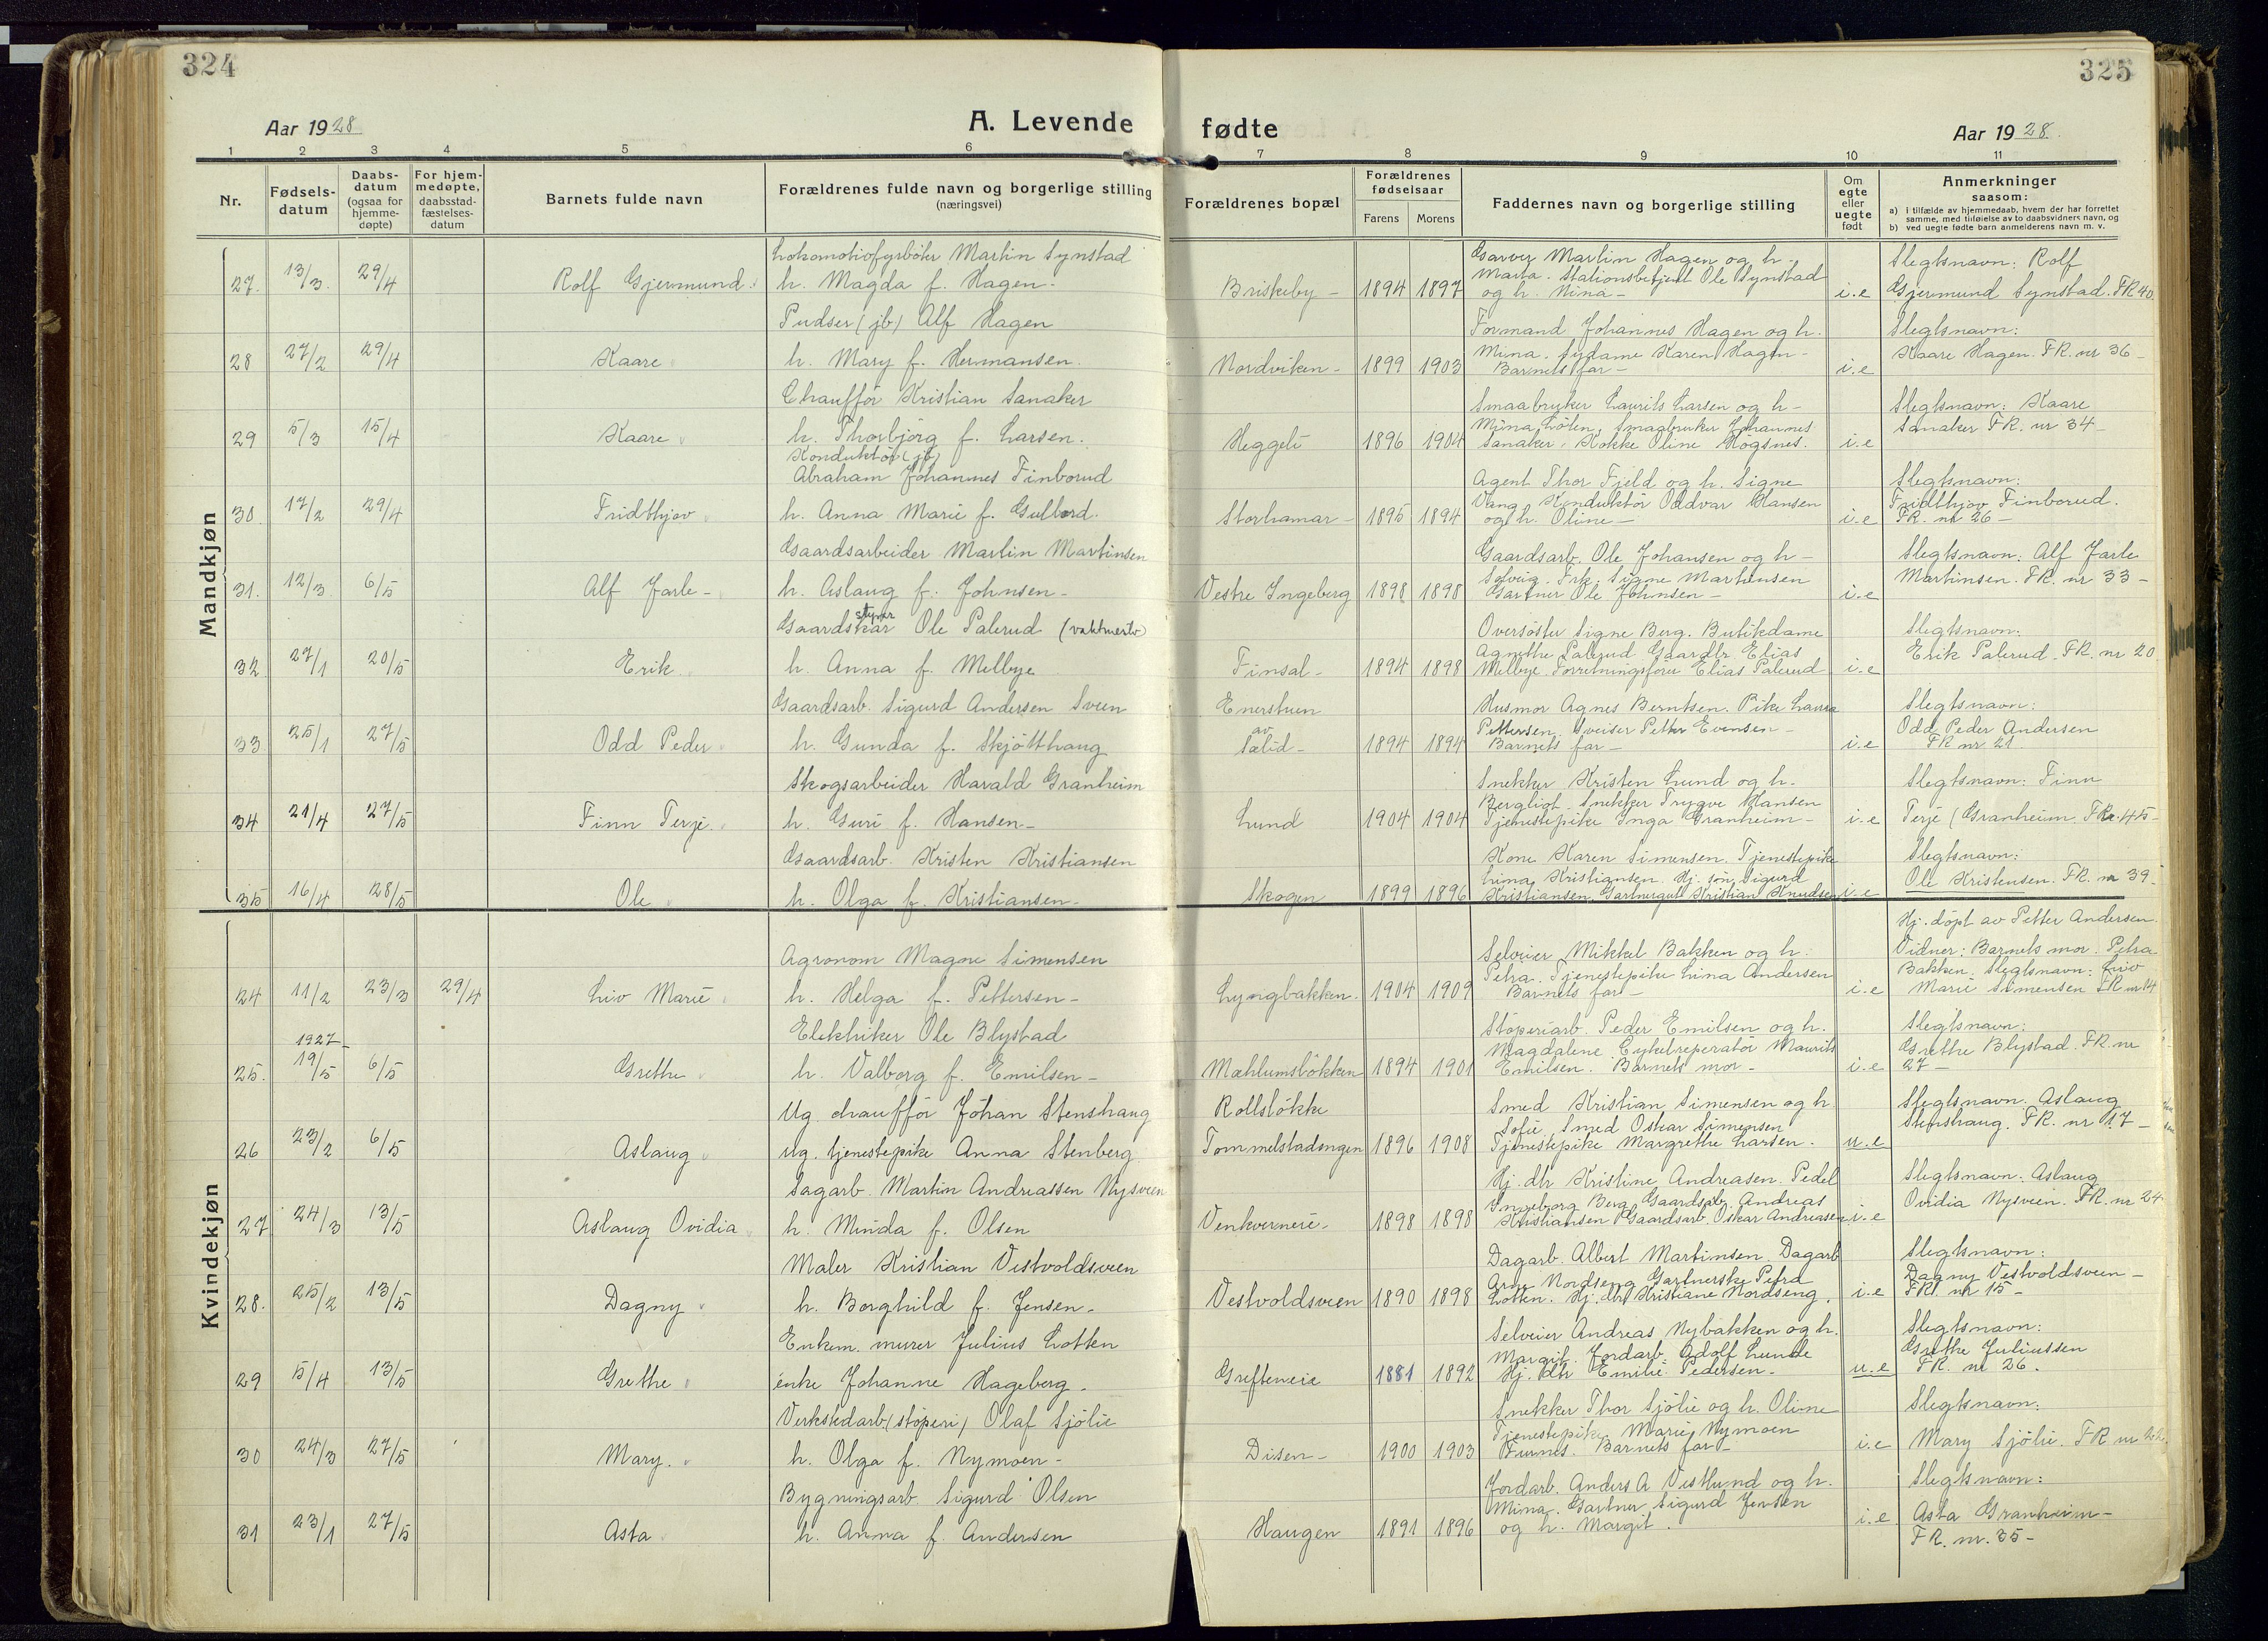 324
325
Aar 1928
A. Levende
fødte
Aar 1928
1 2 3 4 5 6 7 8 9 10 11
Nr.
Fødsels-
datum
Daabs-
datum
(ogsaa for
hjemme-
døpte)
For hjem-
medøpte,
daabsstad-
fæstelses-
datum
Barnets fulde navn
Forældrenes fulde navn og borgerlige stilling
(næringsvei)
Forældrenes bopæl
Forældrenes
fødselsaar
Farens Morens
Faddernes navn og borgerlige stilling
Om
egte
eller
uegte
født
Anmerkninger
saasom:
a) i tilfælde av hjemmedaab, hvem der har forrettet
samme, med tilføielse av to daabsvidners navn, og
b) ved uegte fødte barn anmelderens navn m. v.
Mandkjøn
27. 13/3. 29/4 Rolf Gjermund.
Lokomotivfyrbøter Martin Synstad
h. Magda f. Hagen.
Briskeby – 1894 1897
Garver Martin Hagen og h.
Marta. Stationsbetjent Ole Synstad
og h. Nina –
i.e
Slegtsnavn: Rolf
Gjermund Synstad. FR 40
28 27/2 29/4 Kaare
Pudser (jb) Alf Hagen
h. Mary f. Hermansen.
Nordviken – 1899 1903
Formand Johannes Hagen og h.
Mina. Sydame Karen Hagen –
Barnets far –
i.e
Slegtsnavn:
Kaare Hagen. FR. nr 36 –
29 5/3 15/4 Kaare
Chaufför Kristian Sanaker
h. Thorbjörg f. Larsen.
Heggeli 1896 1904
Smaabruker Laurits Larsen og h –
Mina Løten, Smaabruker Johannes
Sanaker. Kokke Oline Högsnes.
i.e
Slegtsnavn: Kaare
Sanaker FR. nr 34 –
30. 17/2 29/4 Fridthjov
Konduktör (jb)
Abraham Johannes Finborud
h. Anna Marie f. Gullord.
Storhamar – 1895 1894
Agent Thor Fjeld og h. Signe
Vang. Konduktör Oddvar Hansen
og h. Oline –
i.e
Slegtsnavn:
Fridthjov Finborud.
FR. nr 26 –
31. 12/3 6/5 Alf Jarle –
Gaardsarbeider Martin Martinsen
h. Aslaug f. Johnsen –
Vestre Ingeberg 1898 1898
Gaardsarb. Ole Johansen og h –
Solvig. Frk. Signe Marthinsen
Gartner Ole Johnsen –
i.e
Slegtsnavn: Alf Jarle
Martinsen. FR. nr 33 –
32 27/1 20/5 Erik
styrer
Gaardskar Ole Palerud (vaktmester)
h. Anna f. Melbye
Finsal – 1894 1898
Oversöster Signe Berg. Butikdame
Agnethe Palerud Gaardbr Elias
Melbye. Forretningsförer Elias Palerud
i.e
Slegtsnavn:
Erik Palerud. FR. nr 20
33 25/1 27/5 Odd Peder
Gaardsarb. Sigurd Andersen Sveen
h. Gunda f. Skjötthaug
Enerstuen
av
Sælid – 1894 1894
Husmor Agnes Berntsen. Pike Laura
Pettersen. Sveiser Petter Evensen –
Barnets far –
i.e
Slegtsnavn:
Odd Peder Andersen
FR nr 21
34 21/4 27/5 Finn Terje.
Skogsarbeider Harald Granheim
h. Guri f. Hansen –
Lund 1904 1904
Snekker Kristen Lund og h.
Bergliot. Snekker Trygve Hansen
Tjenestepike Inga Granheim –
i.e
Slegtsnavn: Finn
Terje (Granheim. FR nr. 45 –
35 16/4 28/5 Ole
Gaardsarb. Kristen Kristiansen
h. Olga f. Kristiansen –
Skogen 1899 1896
Kone Karen Simensen. Tjenestepike
Lina Kristiansen. Hj. sön Sigurd
Kristiansen. Gartnergut Kristian Knudsen
i.e
Slegtsnavn:
Ole Kristensen. FR. nr 39
Kvindekjøn
24 11/2 23/3 29/4 Liv Marie
Agronom Magne Simensen
h. Helga f. Pettersen –
Lyngbakken. 1904 1909
Selveier Mikkel Bakken og h.
Petra. Tjenestepike Lina Andersen
Barnets far –
i.e
Hj. döpt av Petter Andersen.
Vidner: Barnets mor. Petra
Bakken. Slegtsnavn: Liv
Marie Simensen FR nr 14
1927
25. 19/5 6/5 Grethe
Elektriker Ole Blystad
h. Valborg f. Emilsen –
Mæhlumslökken 1894 1901
Stöperiarb. Peder Emilsen og h.
Magdalene. Cykelreperatör Maurits
Emilsen. Barnets mor –
i.e
Slegtsnavn:
Grethe Blystad. FR. nr
27 –
26 23/2 6/5 Aslaug
Ug. chauffør Johan Stenshaug
ug. tjenestepike Anna Stenberg
Rollslökke
Tommelstadengen 1896 1908
Smed Kristian Simensen og h
Sofie, Smed Oskar Simensen
Tjenestepike Margrethe Larsen.
u.e
Slegtsnavn. Aslaug
Stenshaug. FR. nr 17 –
27 24/3 13/5 Aslaug Ovidia
Sagarb. Martin Andreassen Nysveen
h. Minda f. Olsen
Venkverneie – 1898 1898
Hj. dtr Kristine Andreasen. Pedel
Ingeborg Berg. Gaardsarb. Andreas
Kristiansen Gaardsarb. Oskar Andreasen
i.e
Slegtsnavn: Aslaug
Ovidia Nysveen. FR. nr 24.
28. 25/2 13/5 Dagny
Maler Kristian Vestvoldsveen
h. Borghild f. Jensen –
Vestvoldsveen 1890 1898
Dagarb. Albert Martinsen. Dagarb
Arne Nordseng Gartnerske Petra
Lotten. Hj. dtr Kristiane Nordseng.
i.e
Slegtsnavn:
Dagny Vestvoldsveen –
FR nr 15 –
29 5/4 13/5 Grethe
Enkem. murer Julius Lotten
enke Johanne Hageberg.
Grefteneie 1881 1892
Selveier Andreas Nybakken og h.
Margit. Jordarb. Adolf Lunde
Hj. dtr Emilie Pedersen –
u.e
Slegtsnavn:
Grethe Juliussen
FR. nr 26.
30 24/3 27/5 Mary.
Verkstedarb (stöperi) Olaf Sjölie
h. Olga f. Nymoen –
Disen – 1900 1903
Snekker Thor Sjölie og h. Oline
Tjenestepike Marie Nymoen
Furnes. Barnets far –
i.e
Slegtsnavn:
Mary Sjölie. FR nr 22.
31 23/1 27/5 Asta
Bygningsarb. Sigurd Olsen
h. Anna f. Andersen
Haugen 1891 1896
Jordarb. Anders A Vestlund og h.
Mina. Gartner Sigurd Jensen
og h. Margit.
i.e
Slegtsnavn:
Asta Granheim –
FR. nr. 35 –